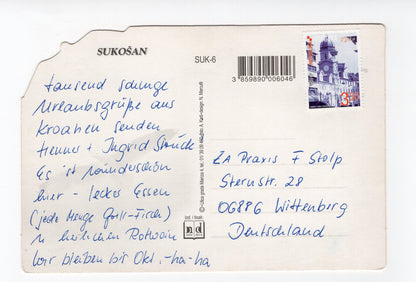 SUKOŠAN
SUK-6
3 859890 006046
tausend sonnige
Urlaubsgrüße aus
Kroatien senden
Henner + Ingrid Strück
Es ist wunderschön
hier - lecker Essen
(jede Menge Grill-Fisch)
u. herrlichen Rotwein
Wir bleiben bis Okt. -ha-ha
ZA Praxis F Stolp
Sternstr. 28
06886 Wittenberg
Deutschland